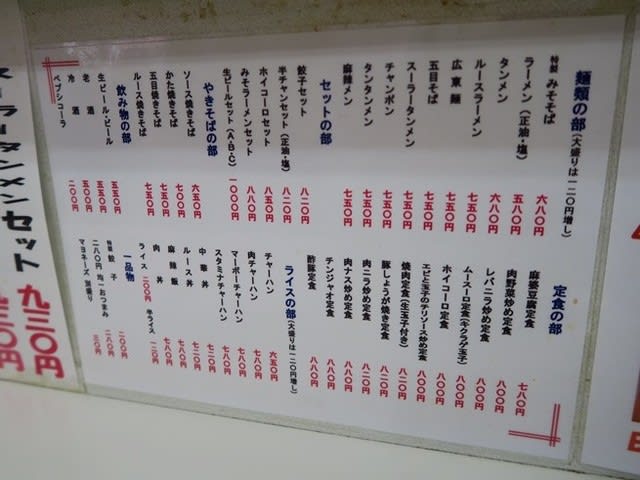 麺類の部(大盛りは一二〇円増し)
特製 みそそば 六八〇円
ラーメン(正油・塩) 五八〇円
タンメン 六八〇円
ルースラーメン 七五〇円
広東麺 七五〇円
五目そば 七五〇円
スーラータンメン 七五〇円
チャンポン 七五〇円
タンタンメン 七五〇円
麻辣メン 七五〇円
セットの部
餃子セット 八二〇円
半チャンセット(正油・塩) 八二〇円
ホイコーロセット 八五〇円
みそラーメンセット 八八〇円
生ビールセット(A・B・C) 一〇〇〇円
やきそばの部
ソース焼きそば 六五〇円
かた焼きそば 七〇〇円
五目焼きそば 七五〇円
ルース焼きそば 七五〇円
飲み物の部
生ビール・ビール 五五〇円
老酒 五〇〇円
冷酒 五〇〇円
ペプシコーラ 二〇〇円
定食の部
麻婆豆腐定食 七八〇円
肉野菜炒め定食 八〇〇円
レバニラ炒め定食 八〇〇円
ムースーロ定食(キクラゲ玉子) 八〇〇円
ホイコーロ定食 八〇〇円
エビと玉子のチリソース炒め定食 八〇〇円
焼肉定食(生玉子付き) 八二〇円
豚しょうが焼き定食 八二〇円
肉ニラ炒め定食 八二〇円
肉ナス炒め定食 八八〇円
チンジャオ定食 八八〇円
酢豚定食 八八〇円
ライスの部(大盛りは一二〇円増し)
チャーハン 六五〇円
肉チャーハン 七八〇円
マーボーチャーハン 七八〇円
スタミナチャーハン 七八〇円
中華丼 七二〇円
ルース丼 七二〇円
麻辣飯 七八〇円
肉丼 七八〇円
ライス 二〇〇円 半ライス 一二〇円
一品物
特製 餃子 二〇〇円
二八〇円均一おつまみ 二八〇円
マヨネーズ 別盛り 三〇円
スーラータンメンセット 九三〇円